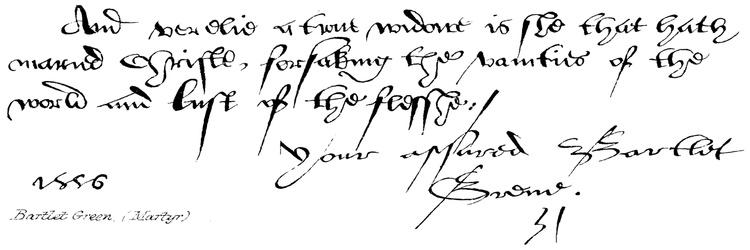 And verelie a true widowe is she that hath
maried Christe, forsaking the vanities of the
world and lust of the flesshe.
Your assured Bartlet
Grene.
1556
Bartlet Green. (Martyr)